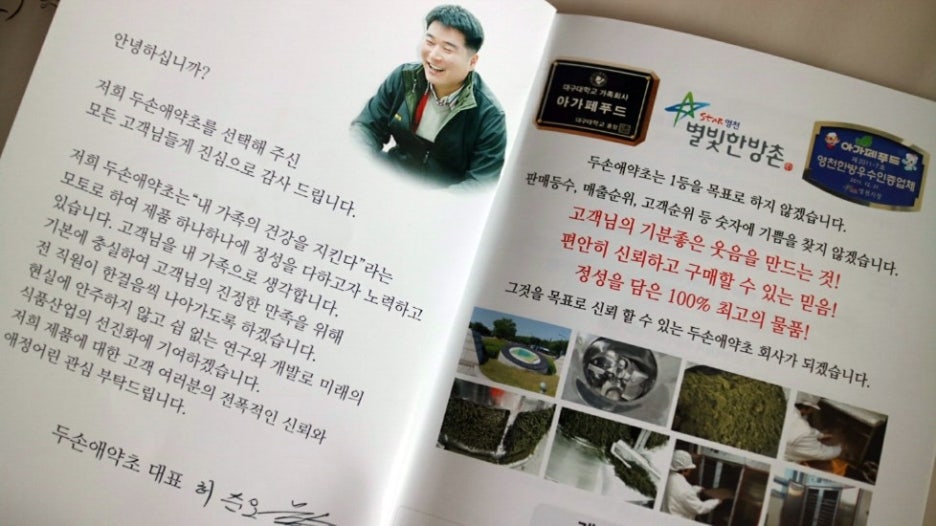 안녕하십니까?
저희 두손애약초를 선택해 주신
모든 고객님들게 진심으로 감사 드립니다.
저희 두손애약초는 "내 가족의 건강을 지킨다"라는
모토로 하여 제품 하나하나에 정성을 다하고자 노력하고
있습니다. 고객님을 내 가족으로 생각합니다.
기본에 충실하여 고객님의 진정한 만족을 위해
전 직원이 한걸음씩 나아가도록 하겠습니다.
현실에 안주하지 않고 쉼 없는 연구와 개발로 미래의
식품산업의 선진화에 기여하겠습니다.
저희 제품에 대한 고객 여러분의 전폭적인 신뢰와
애정어린 관심 부탁드립니다.
두손애약초 대표 허
대구대학교 가족회사
아가페푸드
대구대학교 총장
STAR 영천
별빛한방촌
아가페푸드
영천한방우수인증업체
두손애약초는 1등을 목표로 하지 않겠습니다.
판매등수, 매출순위, 고객순위 등 숫자에 기쁨을 찾지 않겠습니다.
고객님의 기분좋은 웃음을 만드는 것!
편안히 신뢰하고 구매할 수 있는 믿음!
정성을 담은 100% 최고의 물품!
그것을 목표로 신뢰 할 수 있는 두손애약초 회사가 되겠습니다.